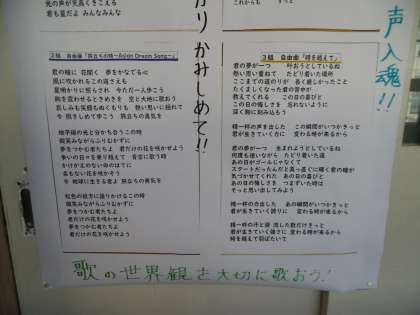 光の声が天高くきこえる
君も星だよ みんなみんな
がり かみしめて!!
声入魂!!
2組 自由曲「旅立ちの時～Asian Dream Song～」
君の瞳に 花開く 夢をかなでるに
風に吹かれるこの道さえも
星明かりに照らされ 今ただ一人歩こう
胸を震わせるときめきを 空と大地に歌おう
哀しみも笑顔もぬくもりも 熱い思いに揺れて
今 抱きしめて歩こう 旅立ちの勇気を
地平線の光と分かち合うこの時
微笑みながらふりむかずに
夢をつかむ者たちよ 君だけの花を咲かせよう
争いの日々を乗り越えて 青空に歌う時
かけがえのない命のはてに
名もない花を咲かそう
今 地球に生きる者よ 旅立ちの勇気を
虹色の彼方に語りかけるこの時
微笑みながらふりむかずに
夢をつかむ者たちよ
君だけの花を咲かせよう
夢をつかむ者たちよ
君だけの花を咲かせよう
3組 自由曲「時を越えて」
君の夢が一つ 叶おうとしているね
熱い思い重ねて たどり着いた場所
ここまでの道のりが 長く厳しかったこと
たくましくなった君の背中が
教えてくれる この日の喜びと
この日の悔しさを 忘れないように
深く胸に刻み込もう
精一杯の声を出した この瞬間がいつかきっと
君が生きていく力に 変わる時が来るから
君の夢が一つ 生まれようとしているね
何度も迷いながら たどり着いた道
あの日がゴールじゃなくて
スタートだったんだと真っ直ぐに輝く君の瞳が
気づかせてくれた あの日の喜びと
あの日の悔しさを つまずいた時は
そっと思い出してみよう
精一杯の声を出した あの瞬間がいつかきっと
君が生きていく誇りに 変わる時が来るから
精一杯の汗と涙 流した数だけきっと
君が生きていく強さに 変わる時が来るから
時を越えて羽ばたいて
歌の世界観を大切に歌おう!